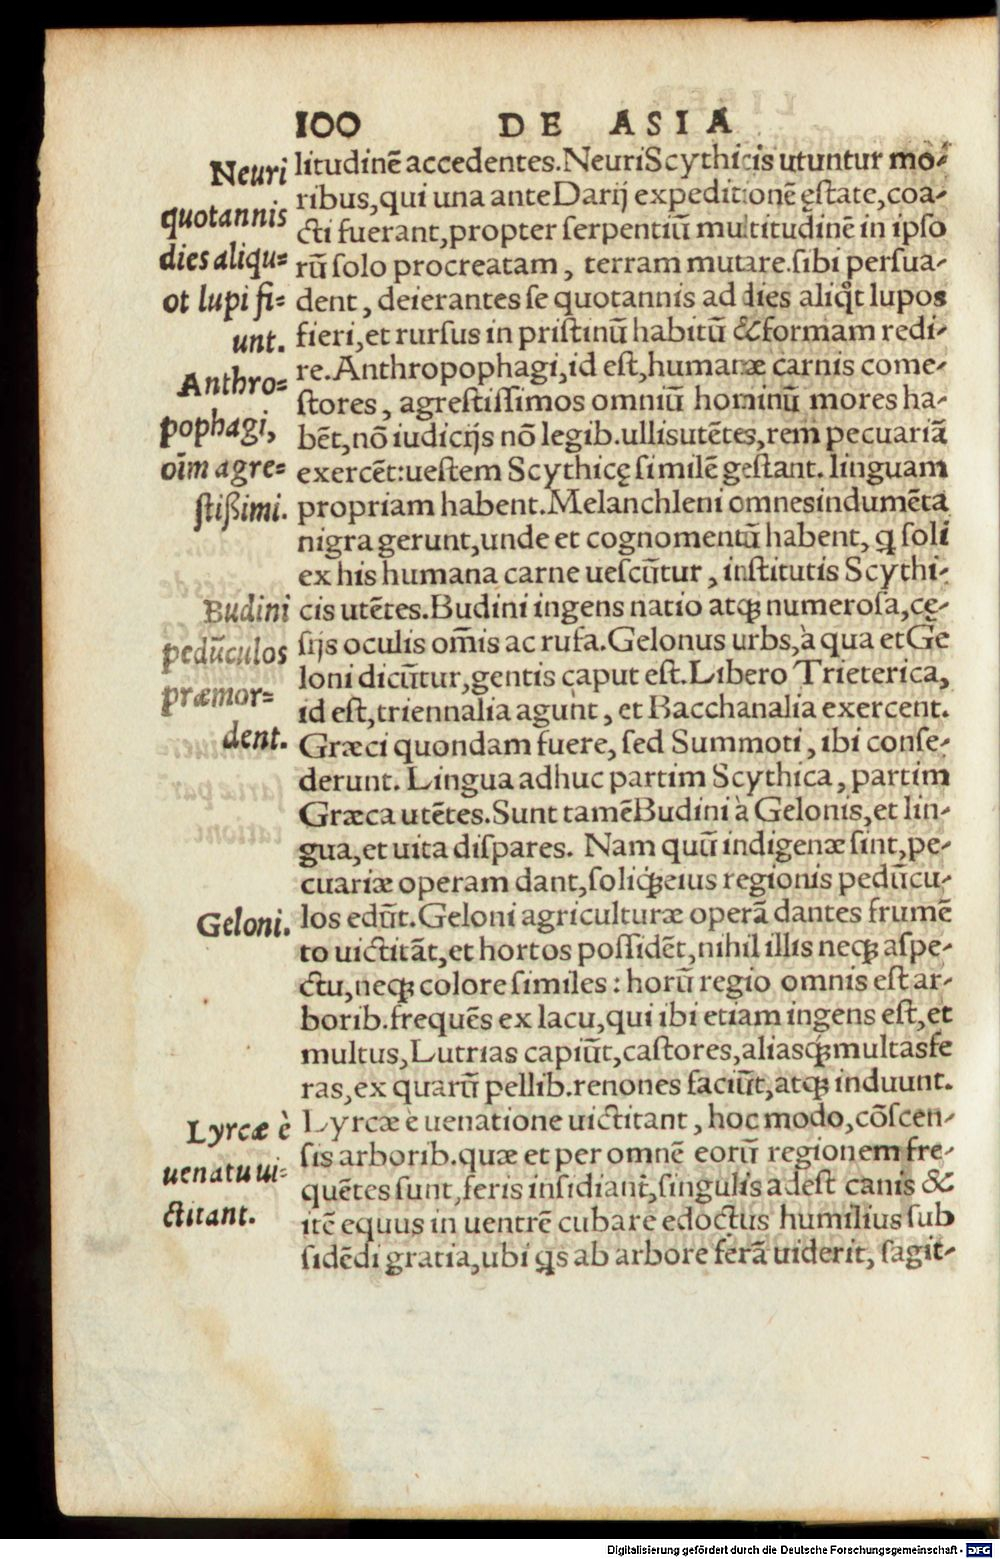 100 DE ASIA
Neuri
quotannis
dies aliqu=
ot lupi fi=
unt.
Anthro=
pophagi,
oīm agre=
stißimi.
Budini
pedūculos
præmor=
dent.
Geloni.
Lyrcæ è
uenatu ui=
ctitant.
litudinē accedentes. Neuri Scythicis utuntur mo-
ribus, qui una ante Darij expeditionē ęstate, coa-
cti fuerant, propter serpentiū multitudinē in ipso
rū solo procreatam, terram mutare. sibi persua-
dent, deierantes se quotannis ad dies aliq̃t lupos
fieri, et rursus in pristinū habitū & formam redi-
re. Anthropophagi, id est, humanæ carnis come-
stores, agrestissimos omniū hominū mores ha-
bēt, nō iudicijs nō legib. ullis utētes, rem pecuariā
exercēt: uestem Scythicę similē gestant. linguam
propriam habent. Melanchleni omnes indumēta
nigra gerunt, unde et cognomentū habent, q soli
ex his humana carne uescūtur, institutis Scythi-
cis utētes. Budini ingens natio atq; numerosa, cę-
sijs oculis om̄is ac rufa. Gelonus urbs, à qua et Ge
loni dicūtur, gentis caput est. Libero Trieterica,
id est, triennalia agunt, et Bacchanalia exercent.
Græci quondam fuere, sed Summoti, ibi conse-
derunt. Lingua adhuc partim Scythica, partim
Græca utētes. Sunt tamē Budini à Gelonis, et lin-
gua, et uita dispares. Nam quū indigenæ sint, pe-
cuariæ operam dant, soliq; eius regionis pedūcu-
los edūt. Geloni agriculturæ operā dantes frumē
to uictitāt, et hortos possidēt, nihil illis neq; aspe-
ctu, neq; colore similes: horū regio omnis est ar-
borib. frequēs ex lacu, qui ibi etiam ingens est, et
multus, Lutrias capiūt, castores, aliasq; multas fe
ras, ex quarū pellib. renones faciūt, atq; induunt.
Lyrcæ è uenatione uictitant, hoc modo, cōscen-
sis arborib. quæ et per omnē eorū regionem fre-
quētes sunt, feris insidiant, singulis adest canis &
itē equus in uentrē cubare edoctus humilius sub
sidēdi gratia, ubi qs ab arbore ferā uiderit, sagit-
Digitalisierung gefördert durch die Deutsche Forschungsgemeinschaft - DFG